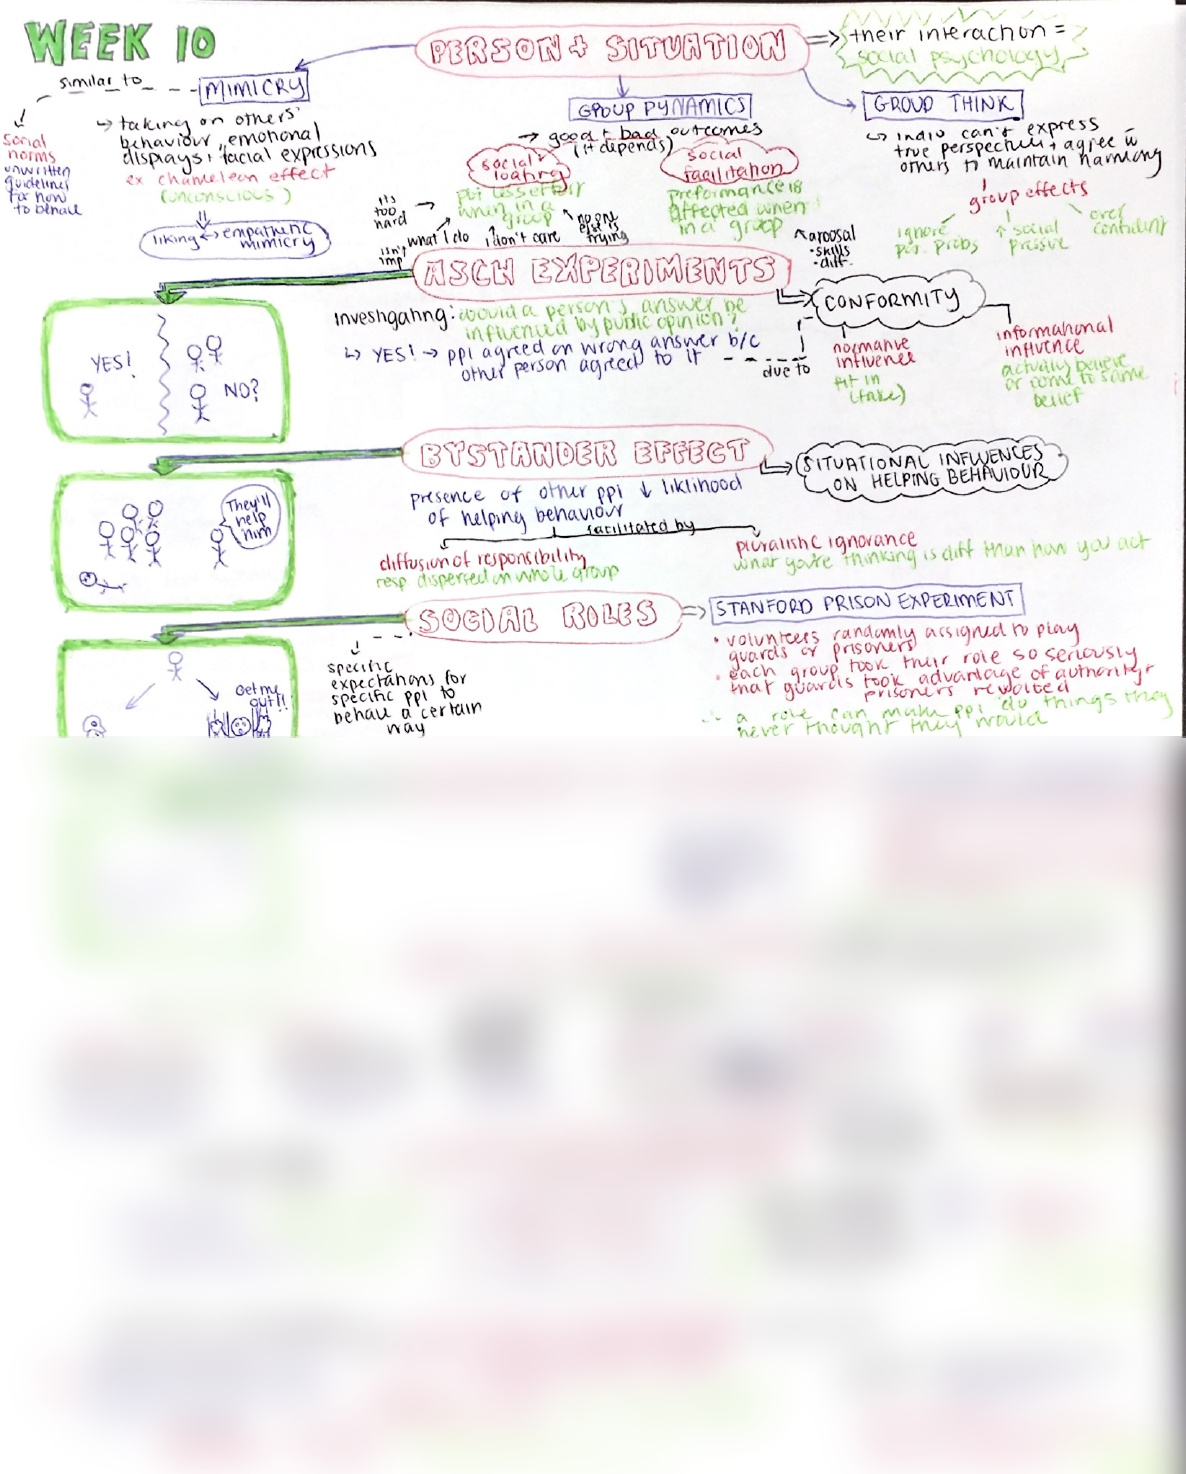 WEEK 10
PERSON + SITUATION
their interaction =
social psychology
similar to
MIMICRY
GROUP DYNAMICS
GROUP THINK
social
norms
unwritten
guidelines
for how
to behave
↳ taking on others'
behaviour, emotional
displays + facial expressions
ex chameleon effect
(unconscious)
liking ↔ empathetic
mimicry
→ good + bad outcomes
(it depends)
social
loafing
put less effort
when in a
group
its
too
hard
isn't
imp
what I do
I don't care
no one
else is
trying
social
facilitation
preformance is
affected when
in a group
arousal
• skills
• diff.
↳ indiv can't express
true perspectives + agree w
others to maintain harmony
group effects
ignore
pos. probs
↑ social
pressure
over
confident
ASCH EXPERIMENTS
CONFORMITY
Investigating: would a person's answer be
influenced by public opinion?
↳ YES! → ppl agreed on wrong answer b/c
other person agreed to it
due to
normative
influence
fit in
(fake)
informational
influence
actually believe
or come to same
belief
YES!
NO?
BYSTANDER EFFECT
SITUATIONAL INFLUENCES
ON HELPING BEHAVIOUR
presence of other ppl ↓ liklihood
of helping behaviour
facilitated by
diffusion of responsibility
resp dispersed on whole group
pluralistic ignorance
what you're thinking is diff than how you act
They'll
help
him
SOCIAL ROLES
STANFORD PRISON EXPERIMENT
specific
expectations for
specific ppl to
behave a certain
way
• volunteers randomly assigned to play
guards or prisoners
• each group took their role so seriously
that guards took advantage of authority +
prisoners revolted
∴ a role can make ppl do things they
never thought they would
Get me
out!!